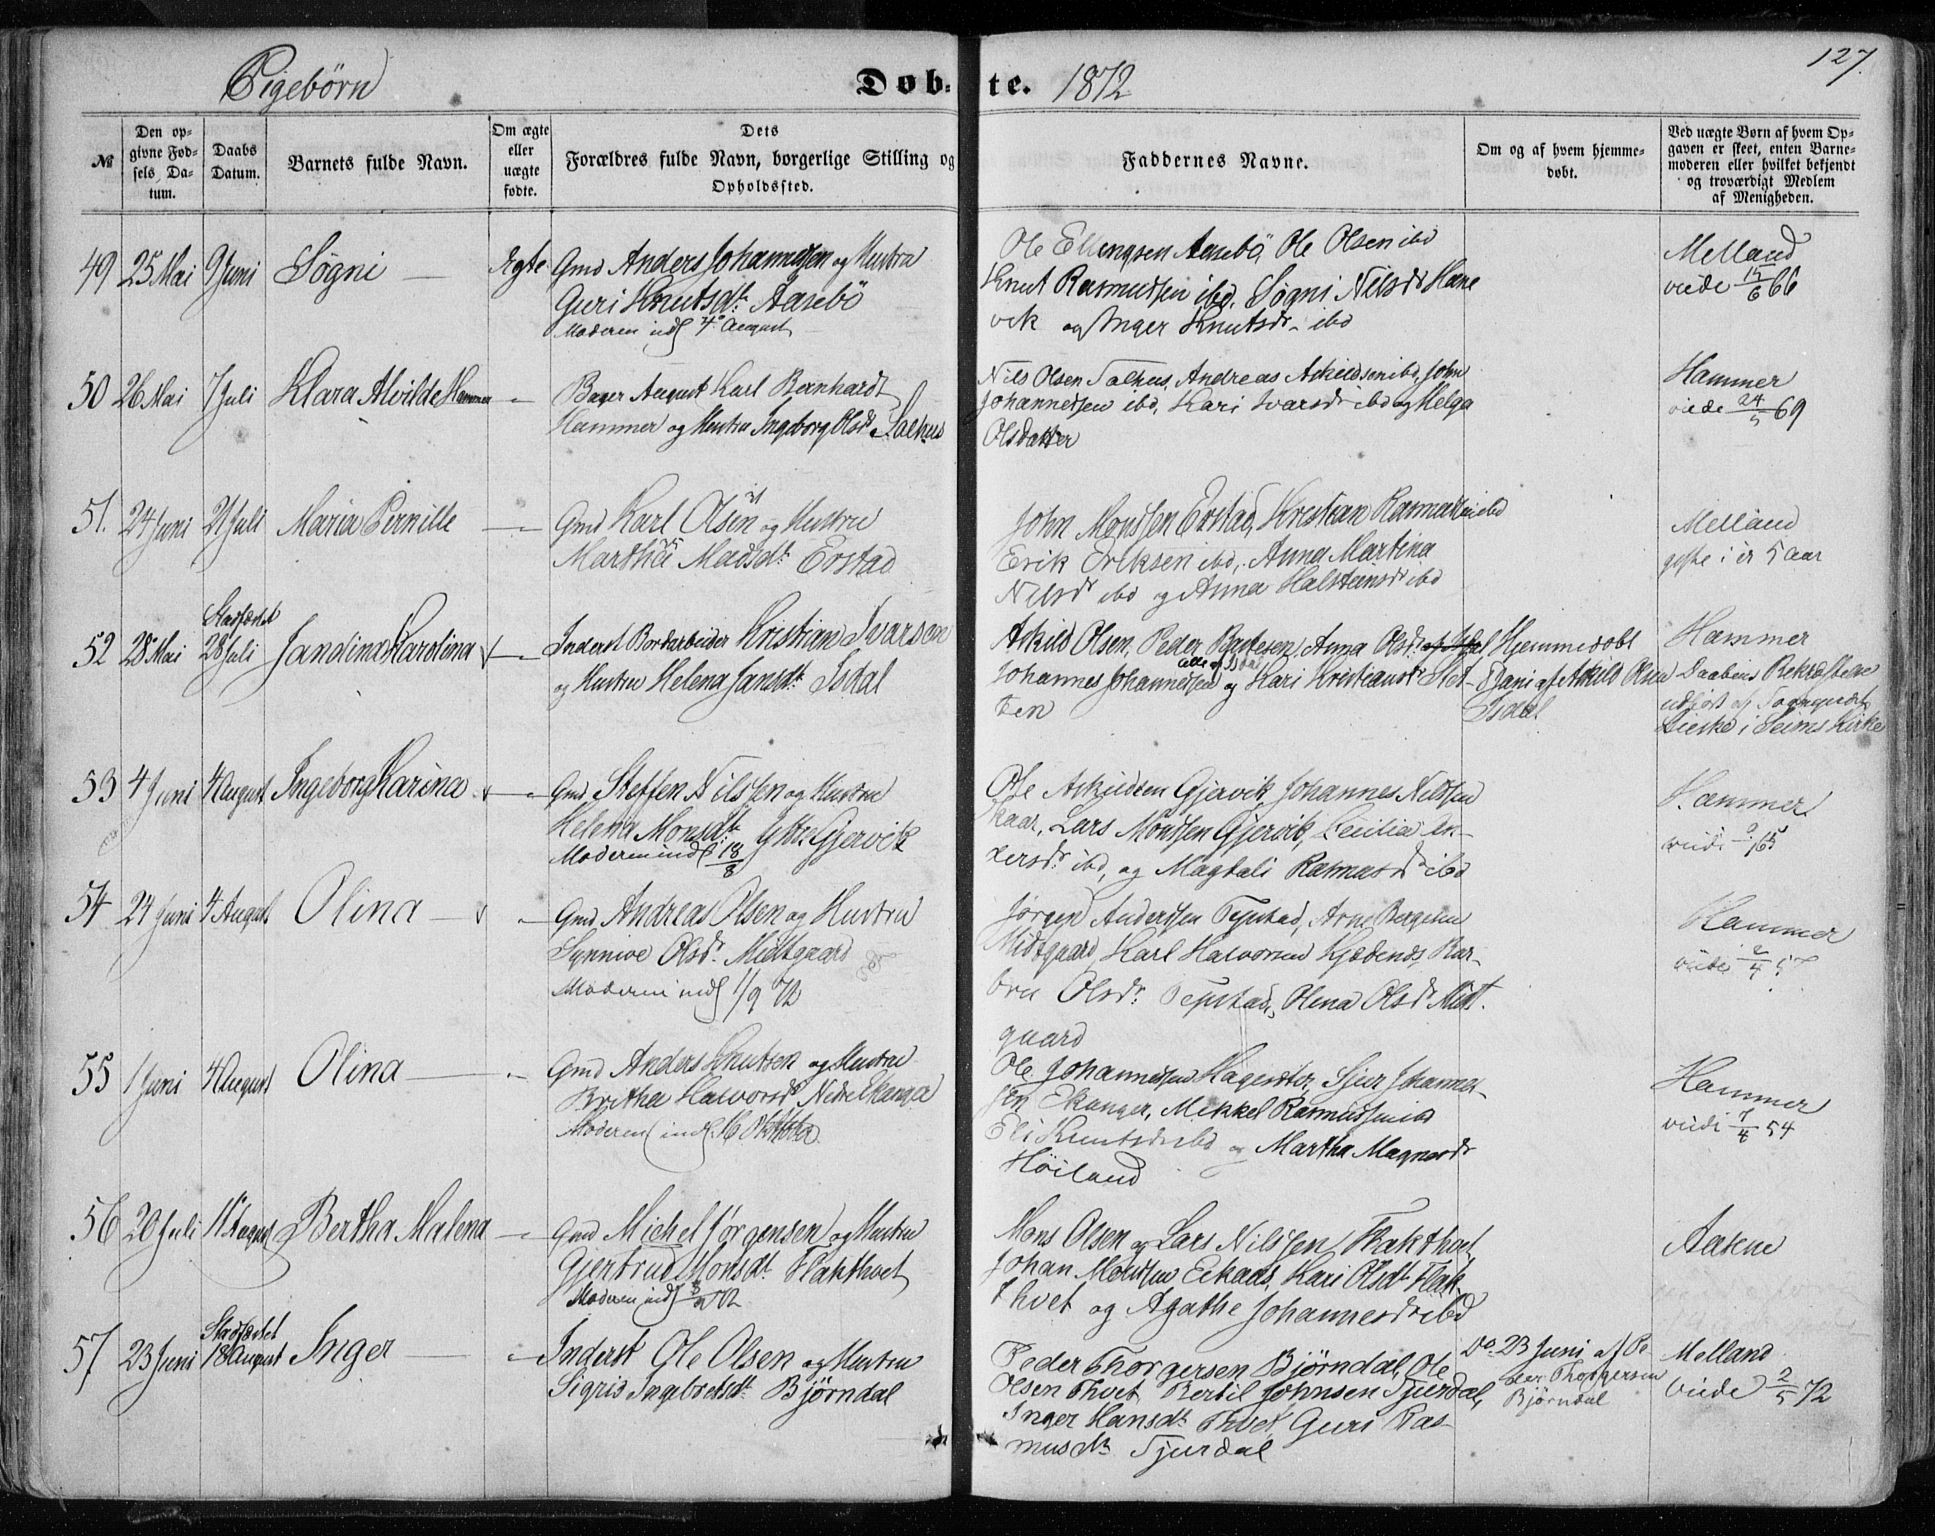 127.
Pigebörn Døb- te. 1872
№
Den op-
givne Fød-
sels Da-
tum.
Daabs
Datum.
Barnets fulde Navn.
Om ægte
eller
uægte
fødte.
Dets
Forældres fulde Navn, borgerlige Stilling og
Opholdssted.
Faddernes Navne.
Om og af hvem hjemme-
døbt.
Ved uægte Børn af hvem Op-
gaven er skeet, enten Barne-
moderen eller hvilket bekjendt
og troværdigt Medlem
af Menigheden.
49 25 Mai 9 Juni Sögni — Ægte Gmd Anders Johannessen og Hustru
Guri Knutsdt. Aasebö
Moderen indl 4 August
Ole Ellingsen Aasebö, Ole Olsen ibd
Knut Rasmussen ibd, Sögni Nilsdr Hane
vik og Inger Knutsdr ibd
Melland
viede 66
50 26 Mai 7 Juli Klara Alvilde Hammer — Bager August Karl Bernhardt
Hammer og Hustru Ingeborg Olsdt Salhus
Nils Olsen Salhus, Andreas Askildsen ibd, John
Johannessen ibd, Kari Ivarsdr ibd og Helga
Olsdatter
Hammer
viede 24/5 69
51. 24 Juni 21 Juli Maria Pernille — Gmd Karl Olsen og Hustru
Martha Madsdt. Evstad
John Monssen Evstad, Kristian Rasmussen ibd
Erik Eriksen ibd, Anna Martina
Nilsdr ibd og Anna Halsteinsdr ibd
Melland
gifte i er 5 Aar
52 28 Mai Stadfæstet
28 Juli Jandina Karolina — Inderst Bordarbeider Kristian Ivarsen
og Hustru Helena Jansdt. Isdal
Askild Olsen, Peder Anna Olsd.
alle af Isdal
Johannes Johannessen og Kari Kristiansdr Stet-
ten
Hjemmedøbt
af Askild Olsen
Isdal
Hammer
Daabens Bekræftelse
udført af
i Seims Kirke
53 4 Juni 4 August Ingeborg Karina — Gmd Steffen Nilssen og Hustru
Helena Monsdt. Ytre Gjervik
Moderen indl 18/8
Ole Askildsen Gjervik, Johannes Nilssen
Skaar, Lars Monssen Gjervik, Cecilia An-
dersdr ibd, og Magdali Rasmusdr ibd
Hammer
viede 65
54 24 Juni 4 August Olina — Gmd Andreas Olsen og Hustru
Synneve Olsdr. Midtgaard
Moderen indl 1/9 72
Jörgen Anderssen Tepstad, Arne
Midtgaard, Karl Halvorsen Bar-
bru Olsdr. Tepstad, Olena Olsdr Midt-
gaard
Hammer
viede 2/4 57
55 1 Juni 4 August Olina — Gmd Anders Knutsen og Hustru
Brithe Halvorsdr Nedre Ekanger
Moderen indl. 16 Oktober
Ole Johannessen Hagesæter, Sjur Johannes-
sen Ekanger, Mikkel Rasmussen ibd
Eli Knutsdr ibd og Martha Magnesdr
Höiland
Hammer
viede 7/4 54
56 20 Juli 11 August Bertha Malena — Gmd Michel Jörgensen og Hustru
Gjertrud Monsdt. Flaktvet
Moderen indl 72
Mons Olsen og Lars Nilssen Flaktvet,
Johan Monssen Eikaas, Kari Olsdt Flak-
thvet og Agathe Johannesdr ibd
Aasene
57 23 Juni Stadfæstet
18 August Inger — Inderst Ole Olsen og Hustru
Sigrid Ingebretsdt. Björndal
Peder Thorgersen Björndal, Ole
Olsen Thvet, Bertil Johnsen Tjurdal,
Inger Hansdt. Thvet, Guri Ras-
musdtr Tjurdal
Do. 23 Juni af Pe-
der Thorgersen
Björndal
Melland
viede 2/5 72